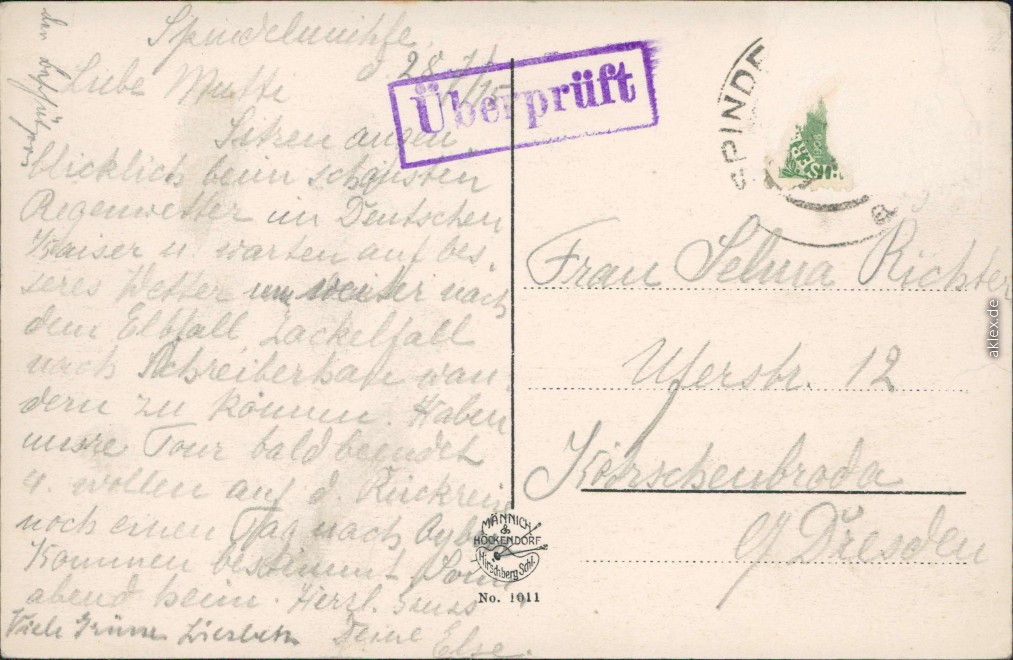 Spindelmühle,
d. 28.7.15
Liebe Mutti
Sitzen augen-
blicklich beim schönsten
Regenwetter im Deutschen
Kaiser u. warten auf bes-
seres Wetter um weiter nach
dem Elbfall, Zackelfall
nach Schreiberhau wan-
dern zu können. Haben
unsre Tour bald beendet
u. wollen auf d. Rückreise
noch einen Tag nach Oybin
Kommen bestimmt Sonn-
abend heim. Herzl. Gruss
Deine Else.
Viele Grüsse Liesbeth
Überprüft
SPINDE
Frau Selma Richter
Uferstr. 12
Kötzschenbroda
b/ Dresden
MÄNNICH
&
HÖCKENDORF
Hirschberg Schl.
No. 1011
aklex.de